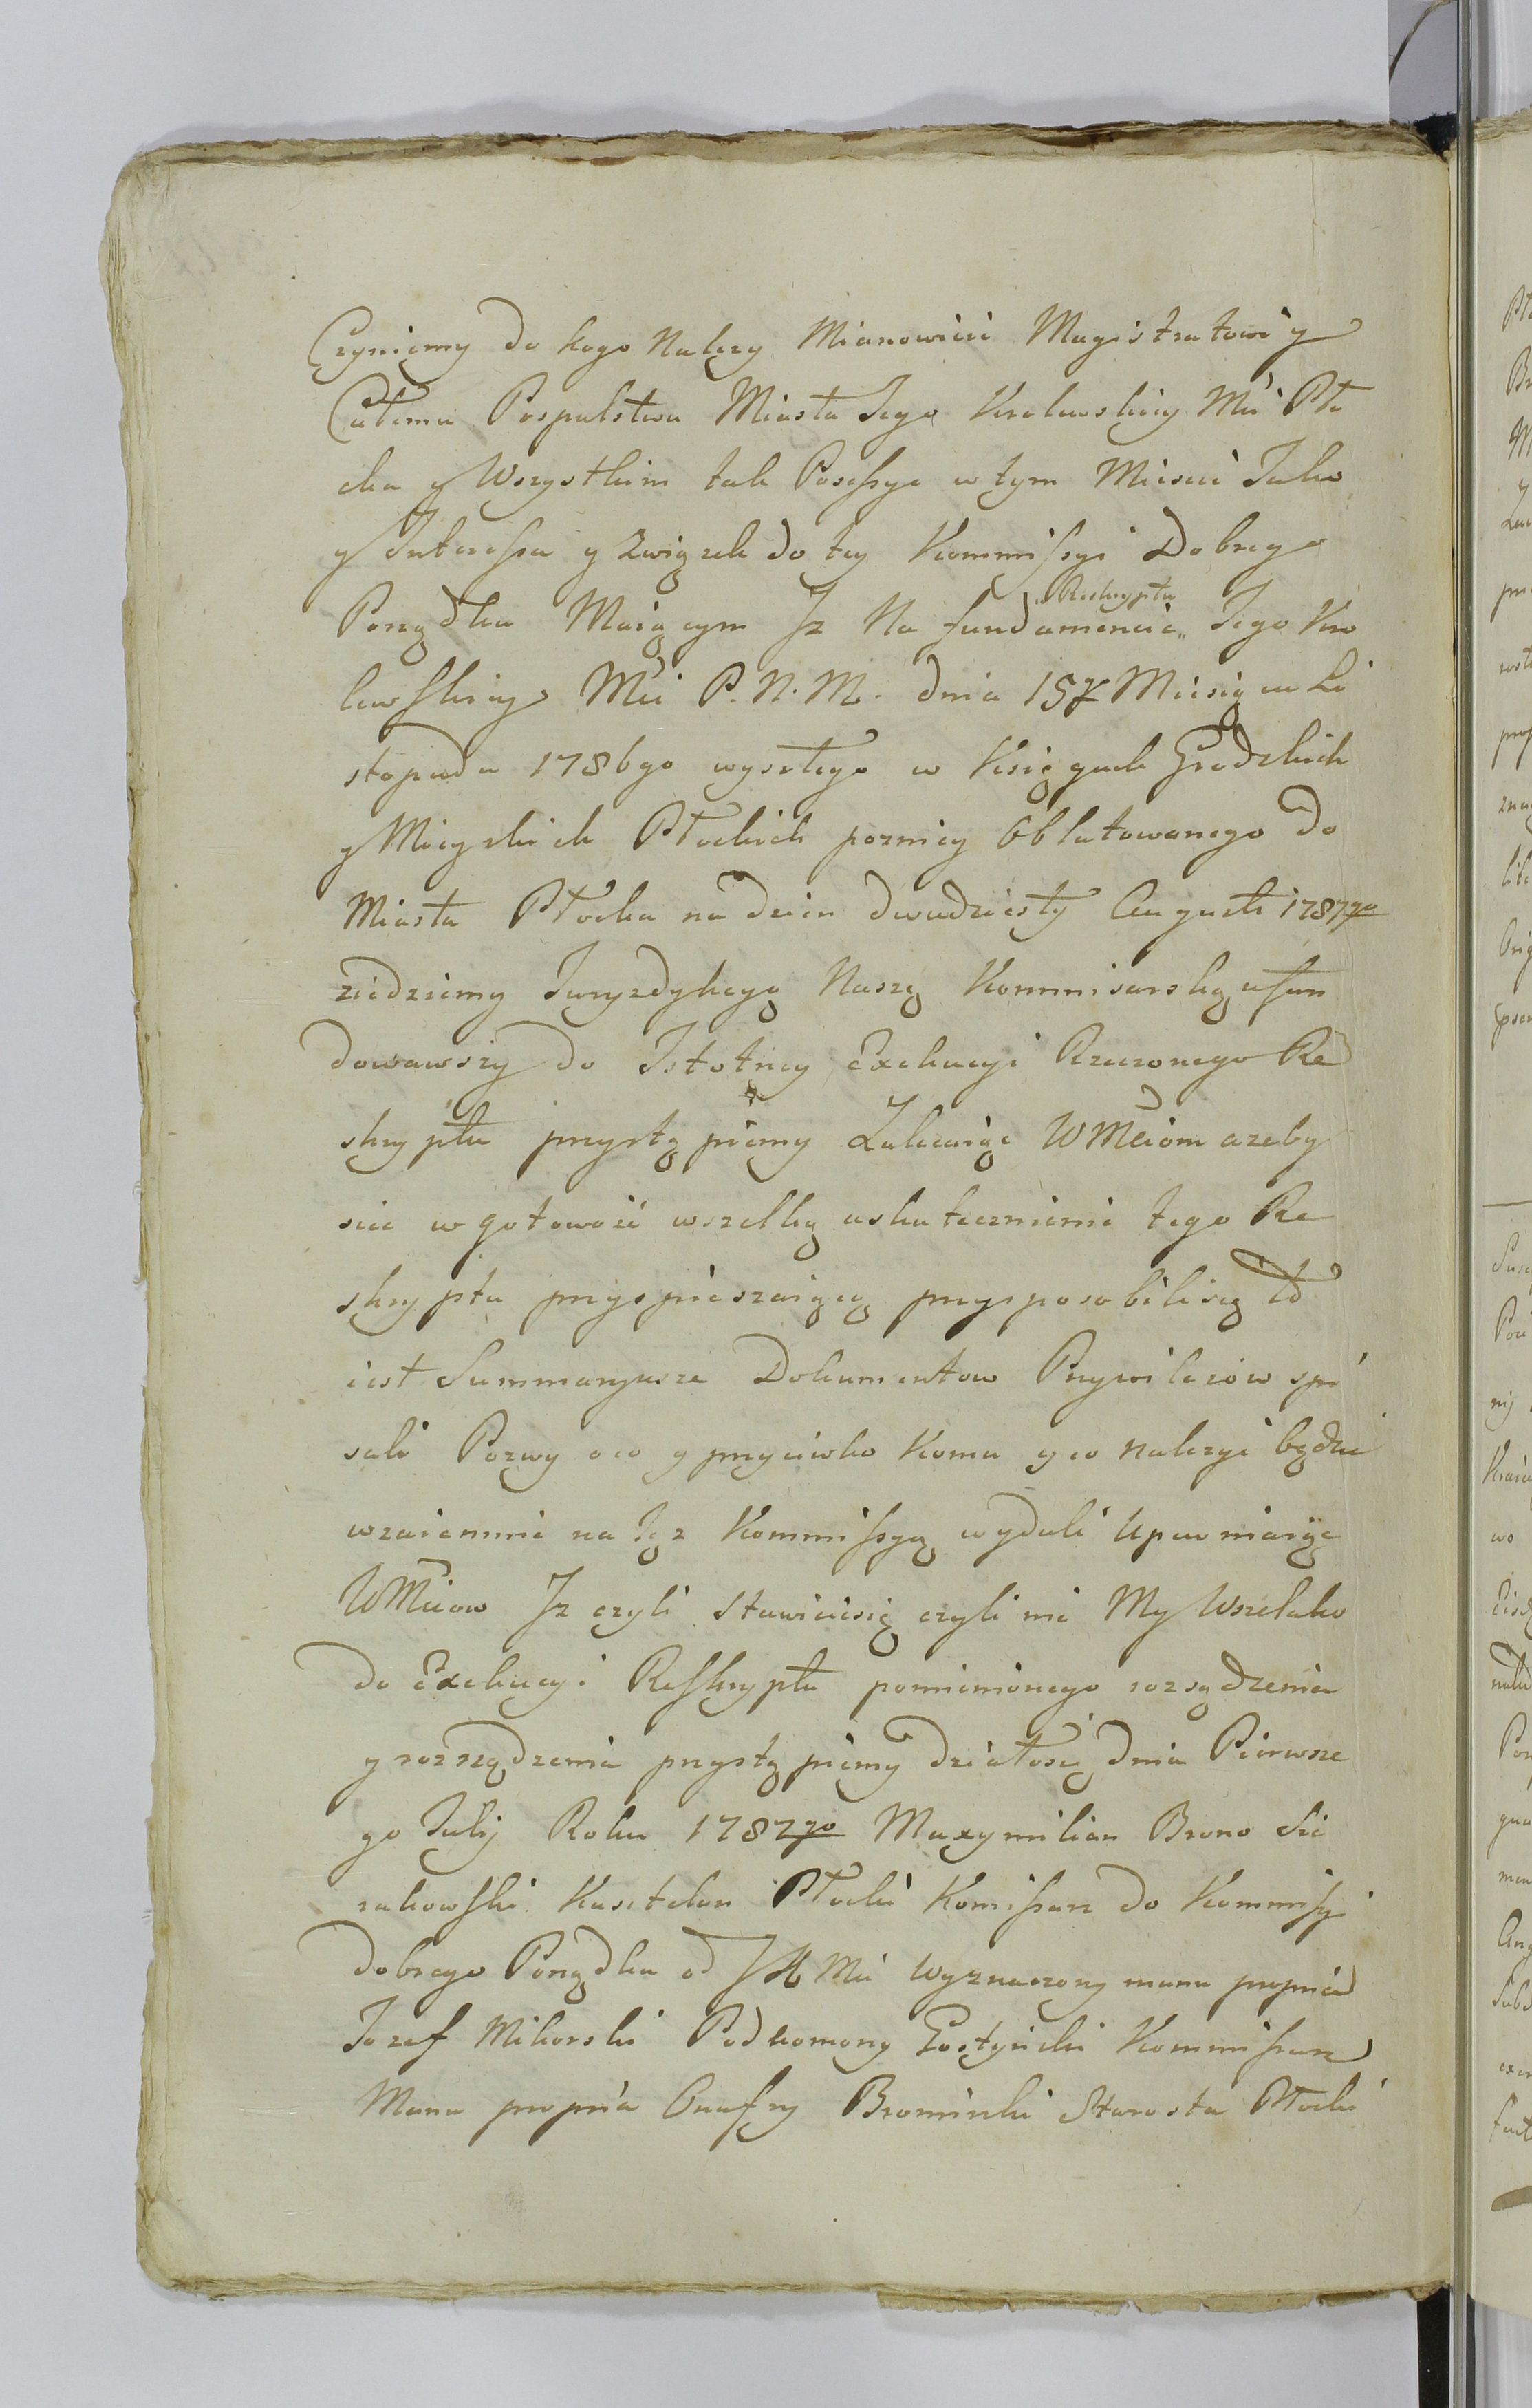 Czyniemy do kogo Nalezy Mianowicie Magistratowi y
Całemu Pospulstwu Miasta Jego Krolewskiey Mći Pło
cka y Wszystkim tak Posessye w tym Miescie Jako
y Interessa y Związek do tey Kommissyi Dobrego
Porządku Maiącym Jz Na fundamencie Reskryptu Jego Kro
lewskiey Mći P. N. M. dnia 15 Miesiąca Li
stopada 1786go wyszłego w Księgach Grodzkich
y Mieyskich Płockich pozniey Oblatowanego do
Miasta Płocka na dzien dwudziesty Augusti 1787go
ziedziemy Juryzdykcyą Naszę Kommisarską ufun
dowawszy do Istotney Exekucyi Rzeczonego Re
skryptu przystąpiemy Zalecaiąc WMciom azeby
scie w gotowość wszelką uskutecznienie tego Re
skryptu przyspieszaiącą przysposobili się to
iest Summaryusze Dokumentow Przywileiow spi
sali Pozwy o co y przeciwko Komu y co nalezyć będzie
wzaiemnie na Tęz Kommissyą wydali Upewniaiąc
WMciow Jz czyli Stawicie się czyli nie My Wszelako
do Exekucyi Resskryptu pomienionego rozsądzenia
y rozrządzenia przystąpiemy działo się dnia Pierwsze
go Julij Roku 1787go Maxymilian Brono Sie
rakowski Kasztelan Płocki Komissarz do Kommissyi
dobrego Porządku od JKMci Wyznaczony manu propria
Jozef Mikorski Podkomorzy Gostyński Kommissarz
Manu propria Onufry Bromirski Starosta Płocki